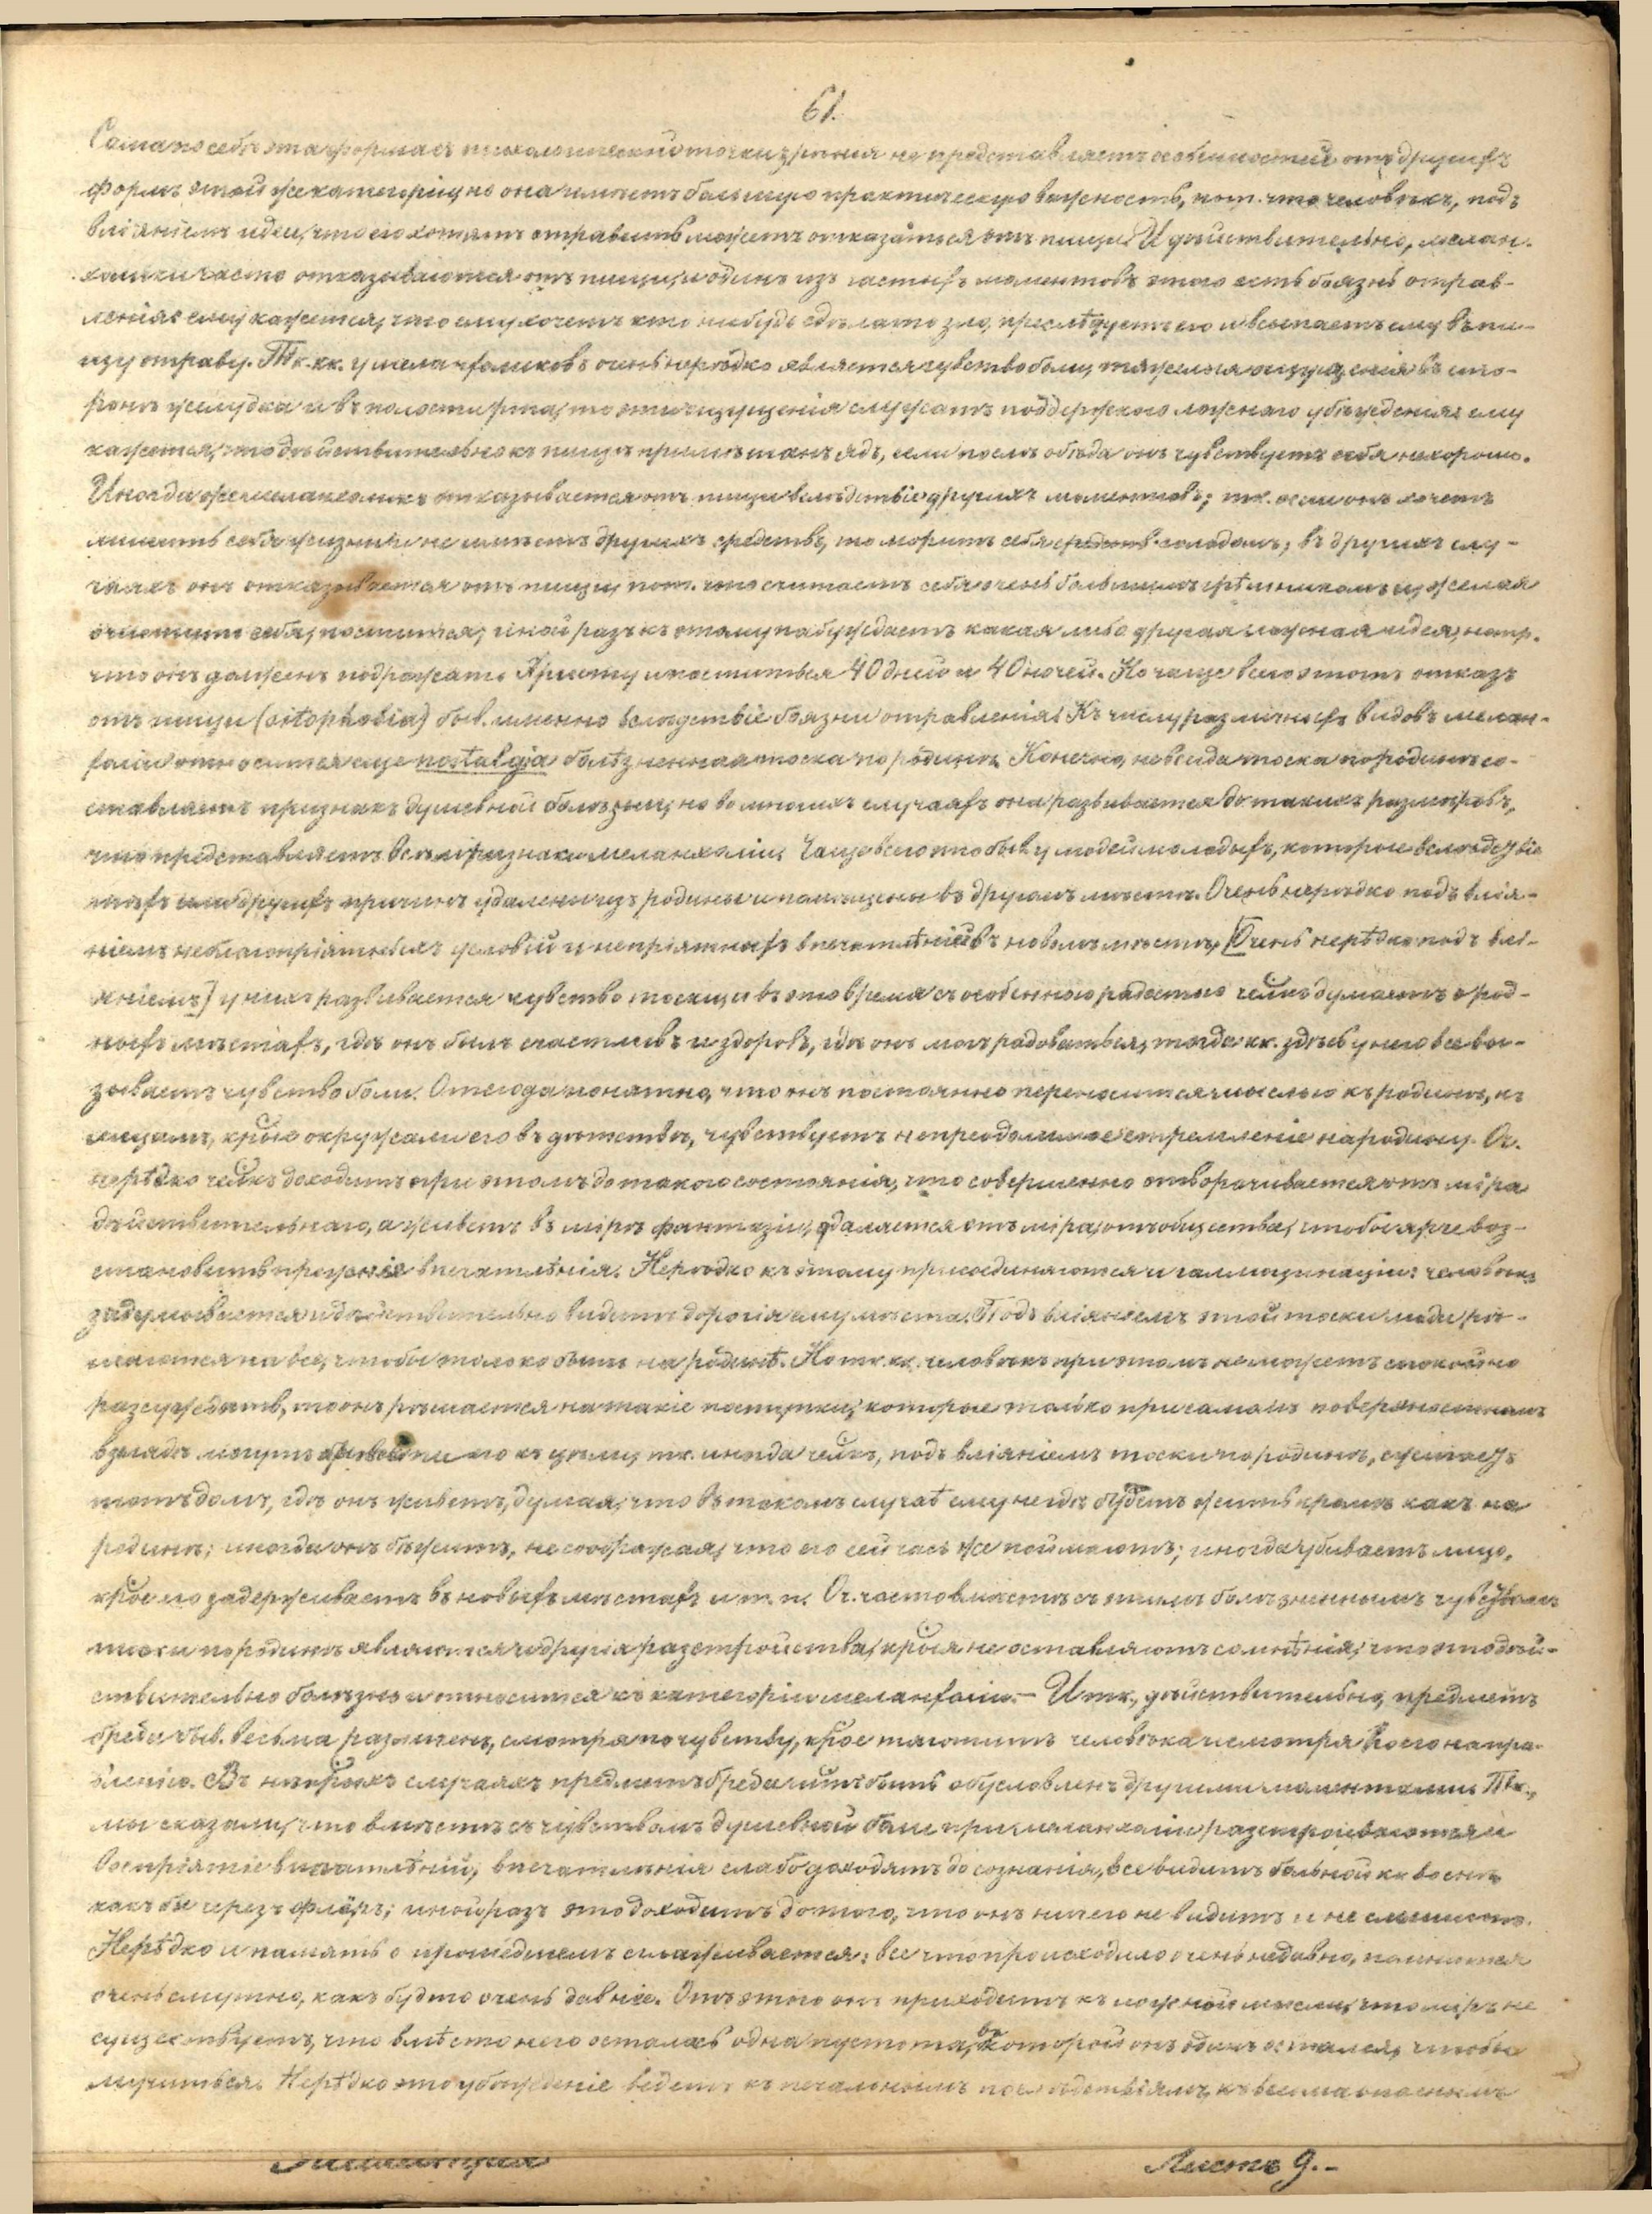 61.
Сама по себѣ эта форма съ психологической точки зрѣнія не представляетъ особенностей отъ другихъ
формъ этой же категоріи, но она имѣетъ большую практическую важность, пот. что человѣкъ, подъ
вліяніемъ идеи, что его хотятъ отравить можетъ отказаться отъ пищи. И дѣйствительно, мелан-
холики часто отказываются отъ пищи, и одинъ изъ частыхъ моментовъ этого есть боязнь отрав-
ленія: ему кажется, что ему хочетъ кто нибудь сдѣлать зло, преслѣдуетъ его и всыпаетъ ему въ пи-
щу отраву. Тк. кк. у меланхоликовъ очень нерѣдко является чувство боли, тяжелыя ощущенія въ сто-
ронѣ желудка и въ полости рта, то эти ощущенія служатъ поддержкою ложнаго убѣжденія: ему
кажется, что дѣйствительно къ пищѣ примѣшанъ ядъ, если послѣ обѣда онъ чувствуетъ себя нехорошо.
Иногда же меланхоликъ отказывается отъ пищи вслѣдствіе другихъ моментовъ; тк. если онъ хочетъ
лишить себя жизни и не имѣетъ другихъ средствъ, то моритъ себя голодомъ; въ другихъ слу-
чаяхъ онъ отказывается отъ пищи, пот. что считаетъ себя очень большимъ грѣшникомъ и, желая
очистить себя, постится; иной разъ къ этому побуждаетъ какая либо другая ложная идея, напр.
что онъ долженъ подражать Христу и поститься 40 дней и 40 ночей. Но чаще всего этотъ отказъ
отъ пищи (sitophobia) быв. именно вслѣдствіе боязни отравленія. Къ числу различныхъ видовъ мелан-
холіи относится еще nostalgia болѣзненная тоска по родинѣ. Конечно, не всегда тоска по родинѣ со-
ставляетъ признакъ душевной болѣзни, но во многихъ случаяхъ она развивается до такихъ размѣровъ,
что представляетъ всѣ признаки меланхоліи. Чаще всего это быв. у людей молодыхъ, которые вслѣдствіе
тѣхъ или другихъ причинъ удалены изъ родины и помѣщены въ другомъ мѣстѣ. Очень нерѣдко подъ влія-
ніемъ неблагопріятныхъ условій и непріятныхъ впечатлѣній въ новомъ мѣстѣ, [Очень нерѣдко подъ влі-
яніемъ] у нихъ развивается чувство тоски, и въ это время съ особенною радостью челкъ думаетъ о род-
ныхъ мѣстахъ, гдѣ онъ былъ счастливъ и здоровъ, гдѣ онъ могъ радоваться, тогда кк. здѣсь у него все вы-
зываетъ чувство боли. Отсюда понятно, что онъ постоянно переносится мыслью къ родинѣ, къ
лицамъ, крые окружали его въ дѣтствѣ, чувствуетъ непреодолимое стремленіе на родину. Оч.
нерѣдко челкъ доходитъ при этомъ до такого состоянія, что совершенно отворачивается отъ міра
дѣйствительнаго, а живетъ въ мірѣ фантазіи, удаляется отъ міра, отъ общества, чтобы ярче воз-
становить прежнія впечатлѣнія. Нерѣдко къ этому присоединяются и галлюцинаціи: человѣкъ
задумывается и дѣйствительно видитъ дорогія ему мѣста. Подъ вліяніемъ этой тоски люди рѣ-
шаются на все, чтобы только быть на родинѣ. Но тк. кк. человѣкъ при этомъ не можетъ спокойно
разсуждать, то онъ рѣшается на такіе поступки, которые только при самомъ поверхностномъ
взглядѣ могутъ привести его къ цѣли; тк. иногда челкъ, подъ вліяніемъ тоски по родинѣ, сжигаетъ
тотъ домъ, гдѣ онъ живетъ, думая, что въ такомъ случаѣ ему негдѣ будетъ жить кромѣ какъ на
родинѣ; иногда онъ бѣжитъ, не соображая, что его сейчасъ же поймаютъ; иногда убиваетъ лицо,
крое его задерживаетъ въ новыхъ мѣстахъ и т. п. Оч. часто вмѣстѣ съ этимъ болѣзненнымъ чувствомъ
тоски по родинѣ являются и другія разстройства, крыя не оставляютъ сомнѣнія, что это дѣй-
ствительно болѣзнь и относится къ категоріи меланхоліи. — И тк., дѣйствительно, предметъ
бреда быв. весьма различенъ, смотря по чувству, крое тяготитъ человѣка и смотря по его напра-
вленію. Въ нѣкрыхъ случаяхъ предметъ бреда можетъ быть обусловленъ другими моментами. Тк.,
мы сказали, что вмѣстѣ съ чувствомъ душевной боли при меланхоліи разстроивается и
воспріятіе впечатлѣній; впечатлѣнія слабо доходятъ до сознанія, все видитъ больной кк. во снѣ
какъ бы черезъ флёръ; иной разъ это доходитъ до того, что онъ ничего не видитъ и не слышитъ.
Нерѣдко и память о прошедшемъ сглаживается: все что происходило очень недавно, помнится
очень смутно, какъ будто очень давнее. Отъ этого онъ приходитъ къ ложной мысли, что міръ не
существуетъ, что вмѣсто него осталась одна пустота, въ которой онъ одинъ остался, чтобы
мучиться. Нерѣдко это убѣжденіе ведетъ къ печальнымъ послѣдствіямъ, къ весьма опаснымъ
Листъ 9.-